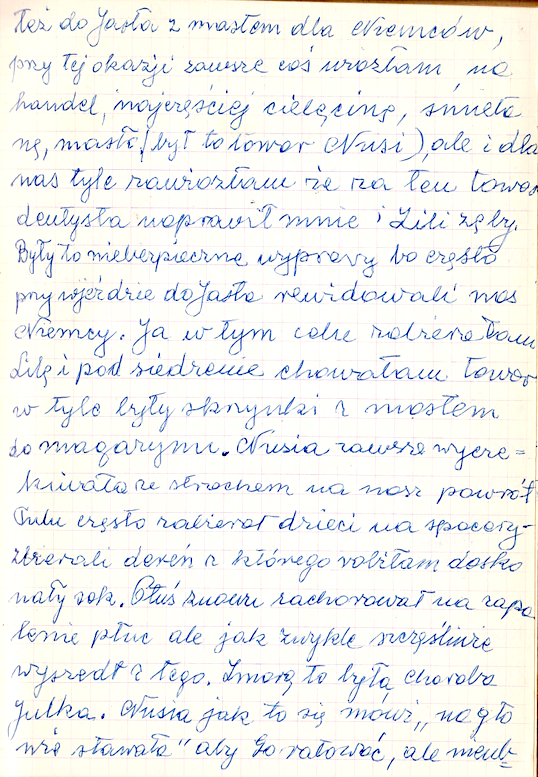 też do Jasła z masłem dla Niemców,
przy tej okazji zawsze coś wiozłam na
handel, najczęściej cielęcinę, śmieta
nę, masło (był to towar Nusi), ale i dla
nas tyle zawiozłam że za ten towar
dentysta naprawił mnie i Lili zęby.
Były to niebezpieczne wyprawy bo często
przy wjeździe do Jasła rewidowali nas
Niemcy. Ja w tym celu zabierałam
Lilę i pod siedzenie chowałam towar
w tyle były skrzynki z masłem
do magazynu. Nusia zawsze wycze=
kiwała ze strachem na nasz powrót
Lulu często zabierał dzieci na spacery-
zbierali dereń z którego robiłam dosko
nały sok. Otuś znowu zachorował na zapa
lenie płuc ale jak zwykle szczęśliwie
wyszedł z tego. Zmorą to była choroba
Julka. Nusia jak to się mówi „na gło
wie stawała" aby Go ratować, ale nieub=